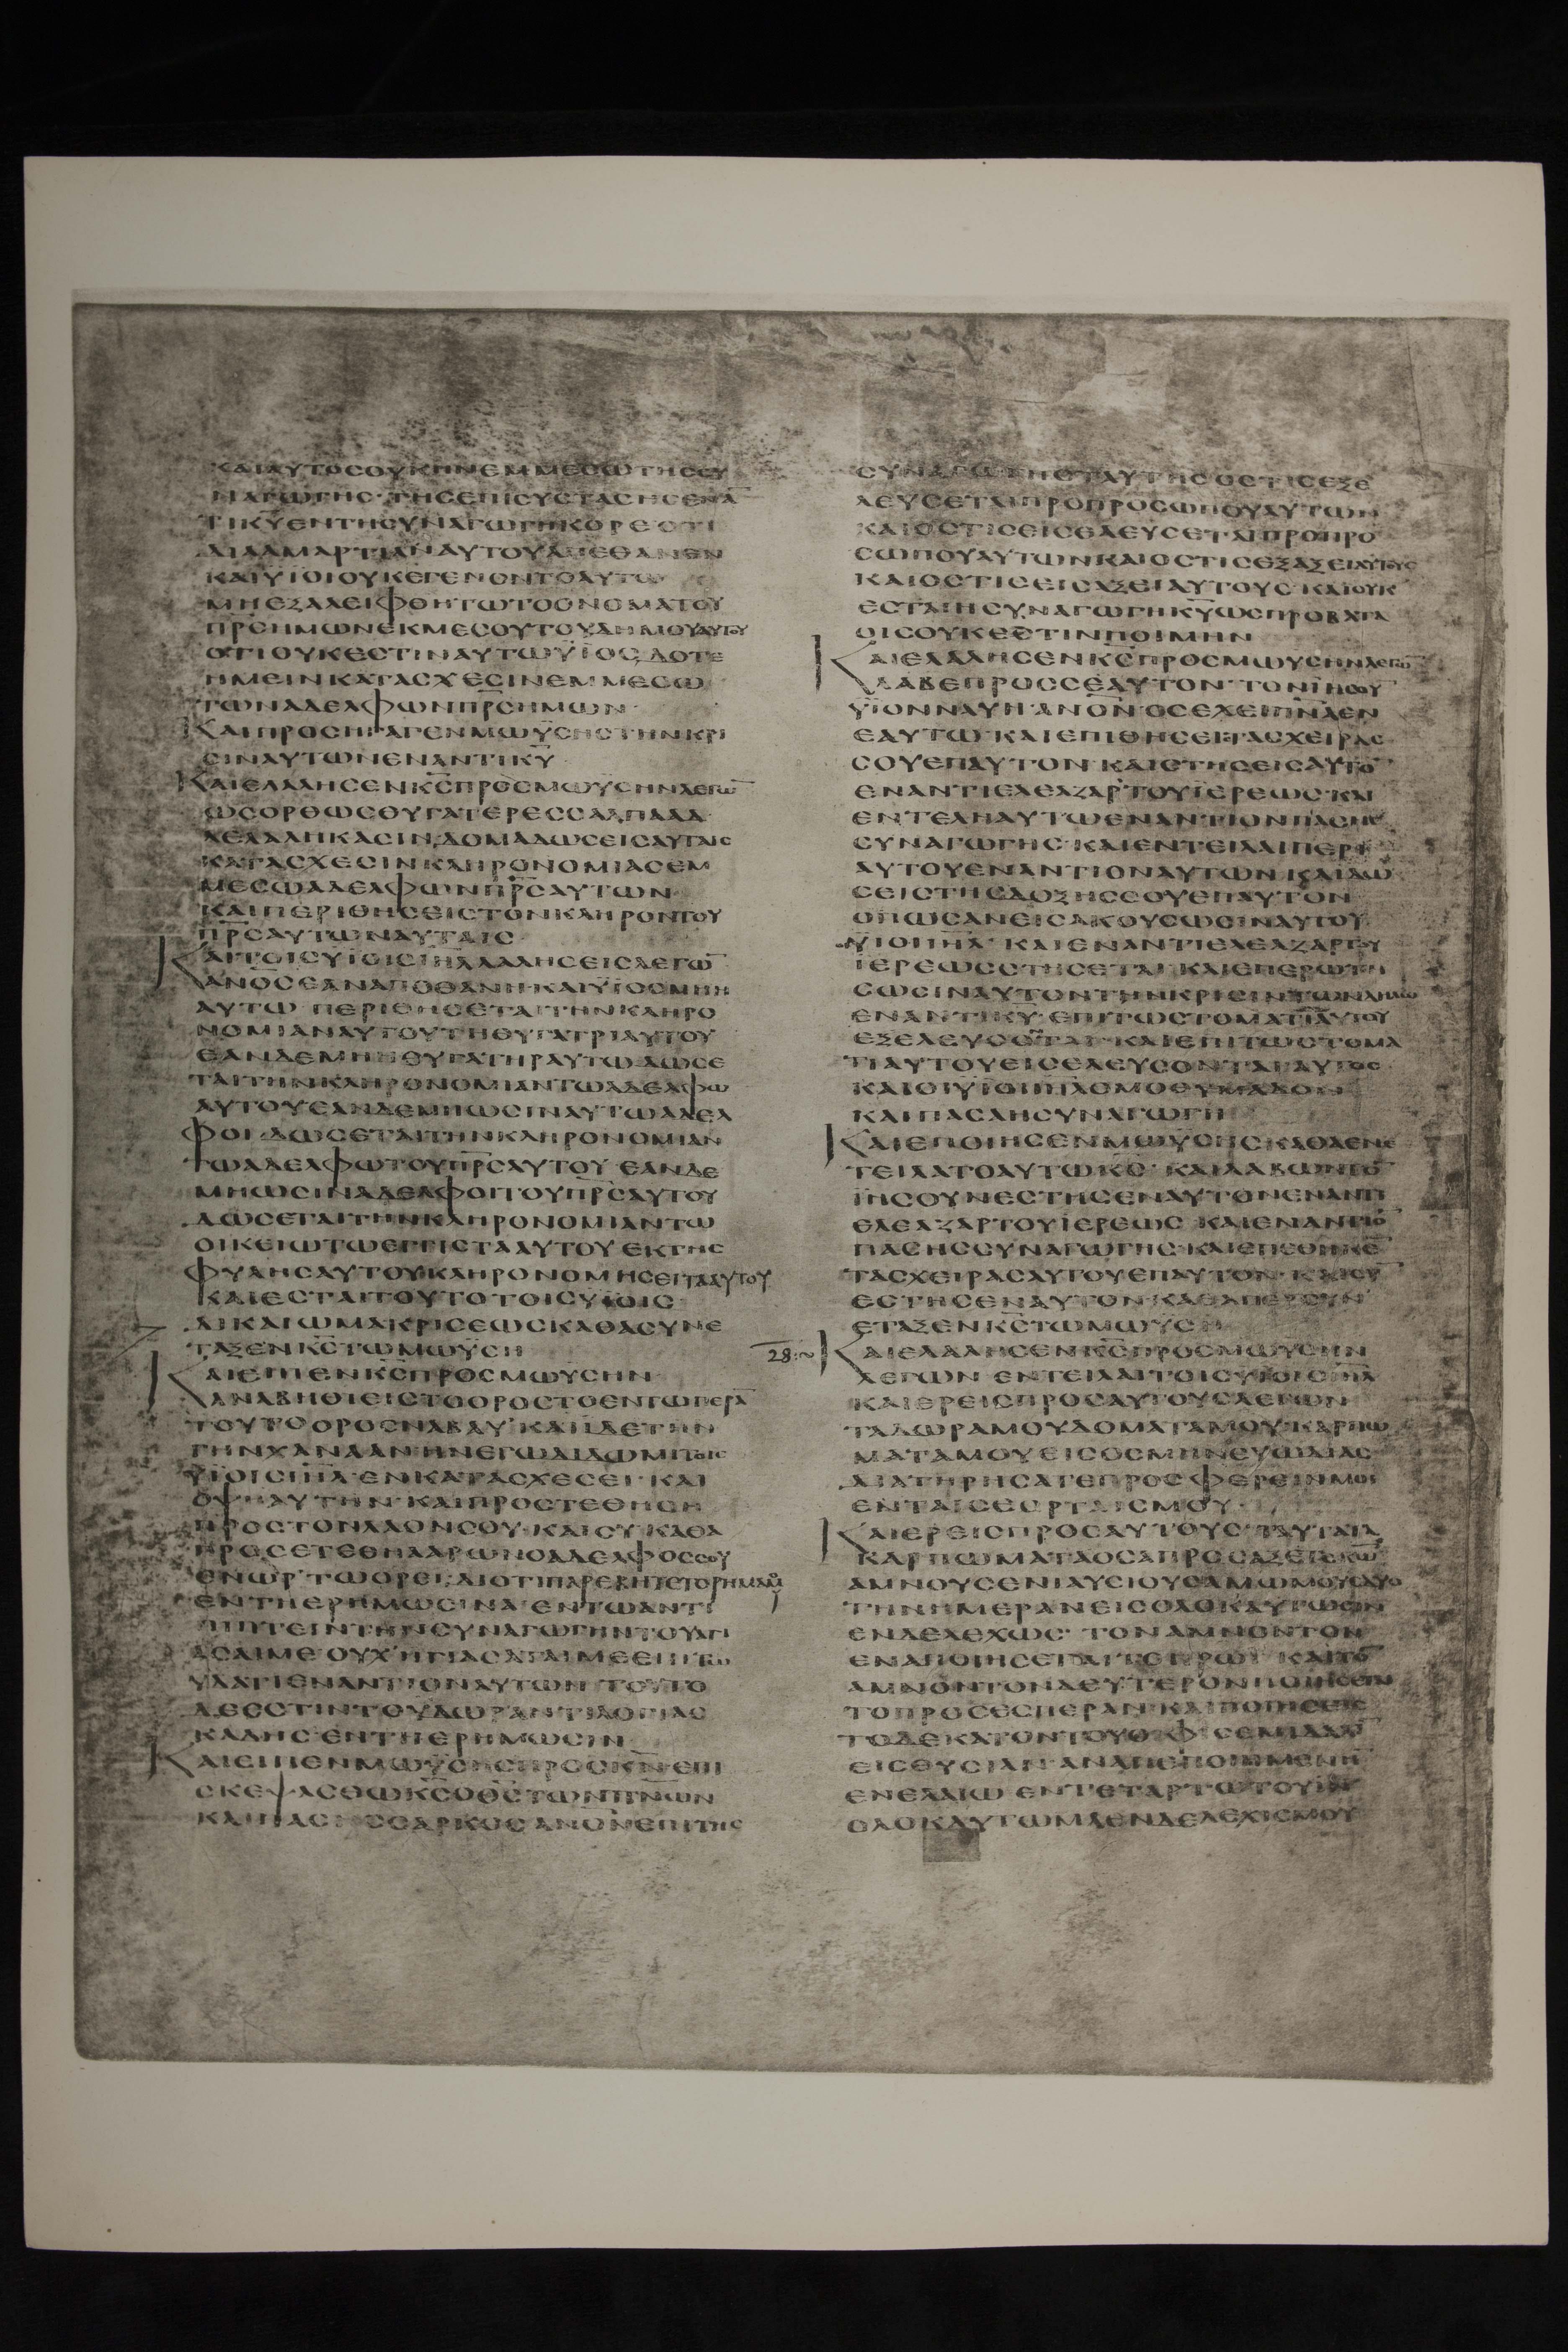 ΚΑΙΑΥΤΟCΟΥΚΗΝΕΜΜΕCΩΤΗCCΥ
ΝΑΓΩΓΗC·ΤΗCΕΠΙCΥCΤΑCΗCΕΝᾹ
ΤΙΚ̅Υ̅ΕΝΤΗCΥΝΑΓΩΓΗΚΟΡΕ·ΟΤΙ
ΔΙΑΑΜΑΡΤΙΑΝΑΥΤΟΥΑΠΕΘΑΝΕΝ
ΚΑΙΫΙΟΙΟΥΚΕΓΕΝΟΝΤΟΑΥΤΩ
ΜΗΕΞΑΛΕΙΦΘΗΤΩΤΟΟΝΟΜΑΤΟΥ
Π̅Ρ̅C̅ΗΜΩΝΕΚΜΕCΟΥΤΟΥΔΗΜΟΥΑΥΤΟΥ
ΟΤΙΟΥΚΕCΤΙΝΑΥΤΩΫΙΟC·ΔΟΤΕ
ΗΜΕΙΝΚΑΤΑCΧΕCΙΝΕΜΜΕCΩ
ΤΩΝΑΔΕΛΦΩΝΠ̅Ρ̅C̅ΗΜΩΝ
ΚΑΙΠΡΟCΗΓΑΓΕΝΜΩΫCΗCΤΗΝΚΡΙ
CΙΝΑΥΤΩΝΕΝΑΝΤΙΚ̅Υ̅
ΚΑΙΕΛΑΛΗCΕΝΚ̅C̅ΠΡΟCΜΩΥCΗΝΛΕΓΩ̄
ΩCΟΡΘΩCΘΥΓΑΤΕΡΕCCΑΛΠΑΑΔ
ΛΕΛΑΛΗΚΑCΙΝ·ΔΟΜΑΔΩCΕΙCΑΥΤΑΙC
ΚΑΤΑCΧΕCΙΝΚΛΗΡΟΝΟΜΙΑCΕΜ
ΜΕCΩΑΔΕΛΦΩΝΠ̅Ρ̅C̅ΑΥΤΩΝ
ΚΑΙΠΕΡΙΘΗCΕΙCΤΟΝΚΛΗΡΟΝΤΟΥ
Π̅Ρ̅C̅ΑΥΤΩΝΑΥΤΑΙC
ΚΑΙΤΟΙCΥΪΟΙCΙ̅Η̅Λ̅ΛΑΛΗCΕΙCΛΕΓΩ̄
Α̅Ν̅Ο̅C̅ΕΑΝΑΠΟΘΑΝΗΚΑΙΥΪΟCΜΗΗ
ΑΥΤΩ ΠΕΡΙΘΗCΕΤΑΙΤΗΝΚΛΗΡΟ
ΝΟΜΙΑΝΑΥΤΟΥΤΗΘΥΓΑΤΡΙΑΥΤΟΥ
ΕΑΝΔΕΜΗΗΘΥΓΑΤΗΡΑΥΤΩΔΩCΕ
ΤΑΙΤΗΝΚΛΗΡΟΝΟΜΙΑΝΤΩΑΔΕΛΦΩ
ΑΥΤΟΥΕΑΝΔΕΜΗΩCΙΝΑΥΤΩΑΔΕΛ
ΦΟΙ·ΔΩCΕΤΑΙΤΗΝΚΛΗΡΟΝΟΜΙΑΝ
ΤΩΑΔΕΛΦΩΤΟΥΠ̅Ρ̅C̅ΑΥΤΟΥ ΕΑΝΔΕ
ΜΗΩCΙΝΑΔΕΛΦΟΙΤΟΥΠ̅Ρ̅C̅ΑΥΤΟΥ
ΔΩCΕΤΑΙΤΗΝΚΛΗΡΟΝΟΜΙΑΝΤΩ
ΟΙΚΕΙΩΤΩΕΓΓΙCΤΑΑΥΤΟΥ ΕΚΤΗC
ΦΥΛΗCΑΥΤΟΥΚΛΗΡΟΝΟΜΗCΕΙΤΑΑΥΤΟΥ
ΚΑΙΕCΤΑΙΤΟΥΤΟΤΟΙCΥΪΟΙC
ΔΙΚΑΙΩΜΑΚΡΙCΕΩCΚΑΘΑCΥΝΕ
ΤΑΞΕΝΚ̅C̅ΤΩΜΩΫCΗ
ΚΑΙΕΙΠΕΝΚ̅C̅ΠΡΟCΜΩΥCΗΝ
ΑΝΑΒΗΘΙΕΙCΤΟΟΡΟCΤΟΕΝΤΩΠΕΡᾹ
ΤΟΥΤΟΟΡΟCΝΑΒΑΥ·ΚΑΙΪΔΕΤΗΝ
ΓΗΝΧΑΝΑΑΝΗΝΕΓΩΔΙΔΩΜΙΤΟΙC
ΫΙΟΙCΙ̅Η̅Λ̅·ΕΝΚΑΤΑCΧΕCΕΙ·ΚΑΙ
ΟΨΗΑΥΤΗΝ·ΚΑΙΠΡΟCΤΕΘΗCΗ
ΠΡΟCΤΟΝΛΑΟΝCΟΥ·ΚΑΙCΥ ΚΑΘΑ
ΠΡΟCΕΤΕΘΗΑΑΡΩΝΟΑΔΕΛΦΟCCΟΥ
ΕΝΩΡ·ΤΩΟΡΕΙ·ΔΙΟΤΙΠΑΡΕΒΗΤΕΤΟΡΗΜΑΜΟΥ
ΕΝΤΗΕΡΗΜΩCΙΝΑ·ΕΝΤΩΑΝΤΙ
ΠΙΠΤΕΙΝΤΗΝCΥΝΑΓΩΓΗΝΤΟΥΑΓΙ
ΑCΑΙΜΕ·ΟΥΧΗΓΙΑCΑΤΑΙΜΕΕΠΙΤΩ
ΥΔΑΤΙΕΝΑΝΤΙΟΝΑΥΤΩΝ ΤΟΥΤΟ
ΔΕCCΤΙΝΤΟΥΔΩΡΑΝΤΙΛΟΓΙΑC
ΚΑΔΗC·ΕΝΤΗΕΡΗΜΩCΙΝ
ΚΑΙΕΙΠΕΝΜΩΥCΗCΠΡΟCΚ̅Ν̅ΕΠΙ
CΚΕΨΑCΘΩΚ̅C̅ΟΘ̅C̅ΤΩΝΠ̅Ν̅ΩΝ
ΚΑΙΠΑCΗCCΑΡΚΟCΑΝ̅Ο̅Ν̅ΕΠΙΤΗC
CΥΝΑΓΩΓΗCΤΑΥΤΗCΟCΤΙCΕΞΕ
ΛΕΥCΕΤΑΙΠΡΟΠΡΟCΩΠΟΥΑΥΤΩΝ
ΚΑΙΟCΤΙCΕΙCΕΛΕΥCΕΤΑΙΠΡΟΠΡΟ
CΩΠΟΥΑΥΤΩΝΚΑΙΟCΤΙCΕΞΑΞΕΙΑΥΤΟΥC
ΚΑΙΟCΤΙCΕΙCΑΞΕΙΑΥΤΟΥC·ΚΑΙΟΥΚ
ΕCΤΑΙΗCΥΝΑΓΩΓΗΚ̅Υ̅ΩCΠΡΟΒΑΤΑ
ΟΙCΟΥΚΕCΤΙΝΠΟΙΜΗΝ
ΚΑΙΕΛΑΛΗCΕΝΚ̅C̅ΠΡΟCΜΩΥCΗΝΛΕΓΩ̄
ΛΑΒΕΠΡΟCCΕΑΥΤΟΝ·ΤΟΝΪΗCΟῩ
ΫΙΟΝΝΑΥΗ·ΑΝ̅Ο̅Ν̅·ΟCΕΧΕΙΠ̅Ν̅Α̅ΕΝ
ΕΑΥΤΩ·ΚΑΙΕΠΙΘΗCΕΙCΤΑCΧΕΙΡΑC
CΟΥΕΠΑΥΤΟΝ·ΚΑΙCΤΗCΕΙCΑΥΤΟ̄
ΕΝΑΝΤΙΕΛΕΑΖΑΡΤΟΥΪΕΡΕΩC·ΚΑΙ
ΕΝΤΕΛΗΑΥΤΩΕΝΑΝΤΙΟΝΠΑCΗC
CΥΝΑΓΩΓΗC·ΚΑΙΕΝΤΕΙΛΑΙΠΕΡΙ
ΑΥΤΟΥΕΝΑΝΤΙΟΝΑΥΤΩΝ·ΚΑΙΔΩ
CΕΙCΤΗCΔΟΞΗCCΟΥΕΠΑΥΤΟΝ
ΟΠΩCΑΝΕΙCΑΚΟΥCΩCΙΝΑΥΤΟΥ
ΥΙΟΙΙ̅Η̅Λ̅·ΚΑΙΕΝΑΝΤΙΕΛΕΑΖΑΡΤΟΥ
ΪΕΡΕΩCCΤΗCΕΤΑΙ ΚΑΙΕΠΕΡΩΤΗ
CΩCΙΝΑΥΤΟΝΤΗΝΚΡΙCΙΝΤΩΝΔΗΛΩ̄
ΕΝΑΝΤΙΚ̅Υ̅·ΕΠΙΤΩCΤΟΜΑΤΙΑΥΤΟΥ
ΕΞΕΛΕΥCΟΝΤΑΙ·ΚΑΙΕΠΙΤΩCΤΟΜΑ
ΤΙΑΥΤΟΥΕΙCΕΛΕΥCΟΝΤΑΙΑΥΤΟC
ΚΑΙΟΙΥΪΟΙΙ̅Η̅Λ̅ΟΜΟΘΥΜΑΔΟΝ
ΚΑΙΠΑCΑΗCΥΝΑΓΩΓΗ
ΚΑΙΕΠΟΙΗCΕΝΜΩΥCΗCΚΑΘΑΕΝΕ
ΤΕΙΛΑΤΟΑΥΤΩΚ̅C̅·ΚΑΙΛΑΒΩΝΤΟ̄
ΪΗCΟΥΝΕCΤΗCΕΝΑΥΤΟΝΕΝΑΝΤΙ
ΕΛΕΑΖΑΡΤΟΥΪΕΡΕΩC ΚΑΙΕΝΑΝΤΙΟ̄
ΠΑCΗCCΥΝΑΓΩΓΗC·ΚΑΙΕΠΕΘΗΚΕ̄
ΤΑCΧΕΙΡΑCΑΥΤΟΥΕΠΑΥΤΟΝ·ΚΑΙCΥ
ΕCΤΗCΕΝΑΥΤΟΝ·ΚΑΘΑΠΕΡCΥΝ
ΕΤΑΞΕΝΚ̅C̅ΤΩΜΩΥCΗ
28:~ ΚΑΙΕΛΑΛΗCΕΝΚ̅C̅ΠΡΟCΜΩΥCΗΝ
ΛΕΓΩΝ ΕΝΤΕΙΛΑΙΤΟΙCΥΪΟΙCΙ̅Η̅Λ̅
ΚΑΙΕΡΕΙCΠΡΟCΑΥΤΟΥCΛΕΓΩΝ
ΤΑΔΩΡΑΜΟΥΔΟΜΑΤΑΜΟΥ·ΚΑΡΠΩ
ΜΑΤΑΜΟΥΕΙCΟCΜΗΝΕΥΩΔΙΑC
ΔΙΑΤΗΡΗCΑΤΕΠΡΟCΦΕΡΕΙΝΜΟΙ
ΕΝΤΑΙCΕΟΡΤΑΙCΜΟΥ
ΚΑΙΕΡΕΙCΠΡΟCΑΥΤΟΥC·ΤΑΥΤΑΤΑ
ΚΑΡΠΩΜΑΤΑΟCΑΠΡΟCΑΞΕΤΕΚ̅Ω̅
ΑΜΝΟΥCΕΝΙΑΥCΙΟΥCΑΜΩΜΟΥCΔΥΟ
ΤΗΝΗΜΕΡΑΝΕΙCΟΛΟΚΑΥΤΩCΙΝ
ΕΝΔΕΛΕΧΩC·ΤΟΝΑΜΝΟΝΤΟΝ
ΕΝΑΠΟΙΗCΕΤΑΙΤΟΠΡΩΙ·ΚΑΙΤΟ̄
ΑΜΝΟΝΤΟΝΔΕΥΤΕΡΟΝΠΟΙΗCΕΤΑΙ
ΤΟΠΡΟCΕCΠΕΡΑΝ·ΚΑΙΠΟΙΗCΕΙC
ΤΟΔΕΚΑΤΟΝΤΟΥΟΙΦΙCΕΜΙΔΑΛῙ
ΕΙCΘΥCΙΑΝ·ΑΝΑΠΕΠΟΙΗΜΕΝΗ̄
ΕΝΕΛΑΙΩ ΕΝΤΕΤΑΡΤΩΤΟΥΙΝ
ΟΛΟΚΑΥΤΩΜΑΕΝΔΕΛΕΧΙCΜΟΥ